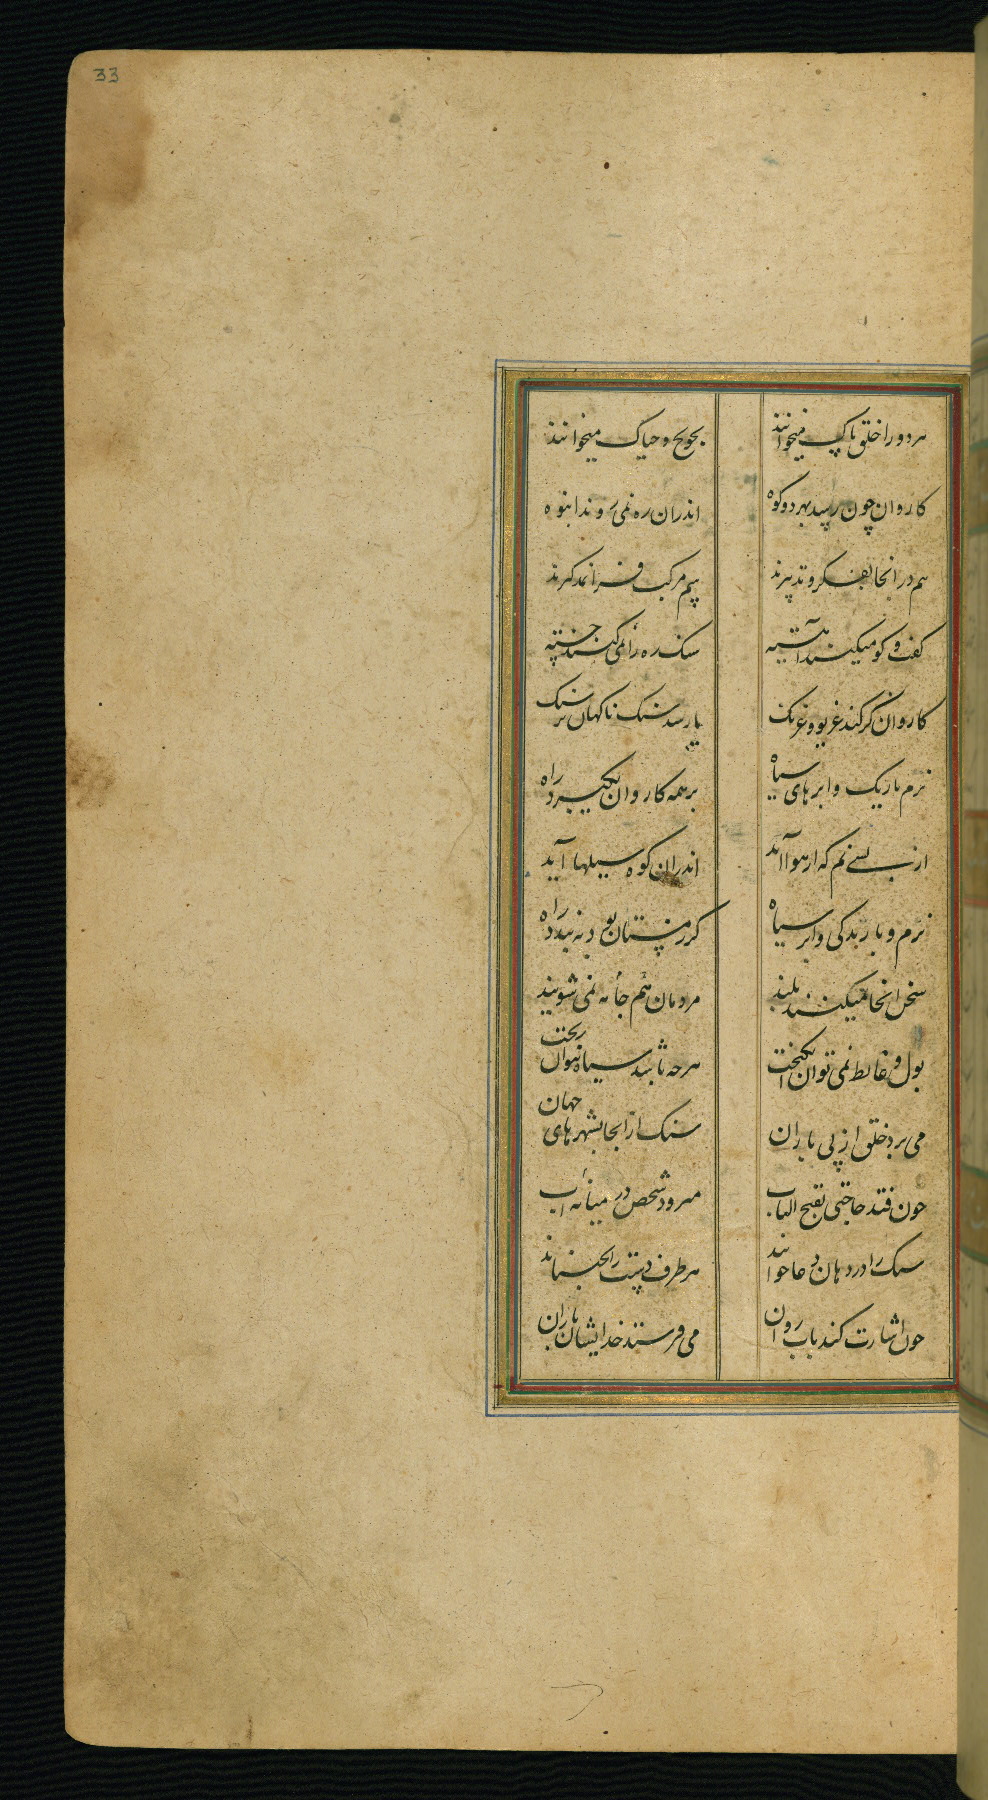 33
هر دو را خلق پاک میخوانند
بجویح و حیاک میخوانند
کاروان چون رسید بهر دو کوه
اندران ره نمی روند انبوه
هم در انجا بفکر و تدبیرند
سم مرکب نمد کیرند
کفت و کو میکنند آهسته
سنک ره را نمی کنند خسته
کاروان کر کند غریو و غرنک
بارد سنک ناکهان بر سنک
نرم باریک و ابرهای سیاه
بر همه کاروان بکیرد راه
از بسے نم که از هوا آید
اندران کوه سیلها آید
نرم و بارندکی و ابر سیاه
کر زمستان بود به بندد راه
سخن انجا میکنند بلند
مردمان هم جامه نمی شویند
بول و غایط نمی توان انکیخت
هرچه باشد سیاه نتوان ریخت
می برد خلق از پی باران
سنک از انجا بشهرهای جهان
چون فتد حاجتی
میرود شخص در میانه اب
سنک را در دهان دعا خواند
هر طرف دست را بجنباند
چون اشارت کند باب روان
می فرستد خدایشان باران